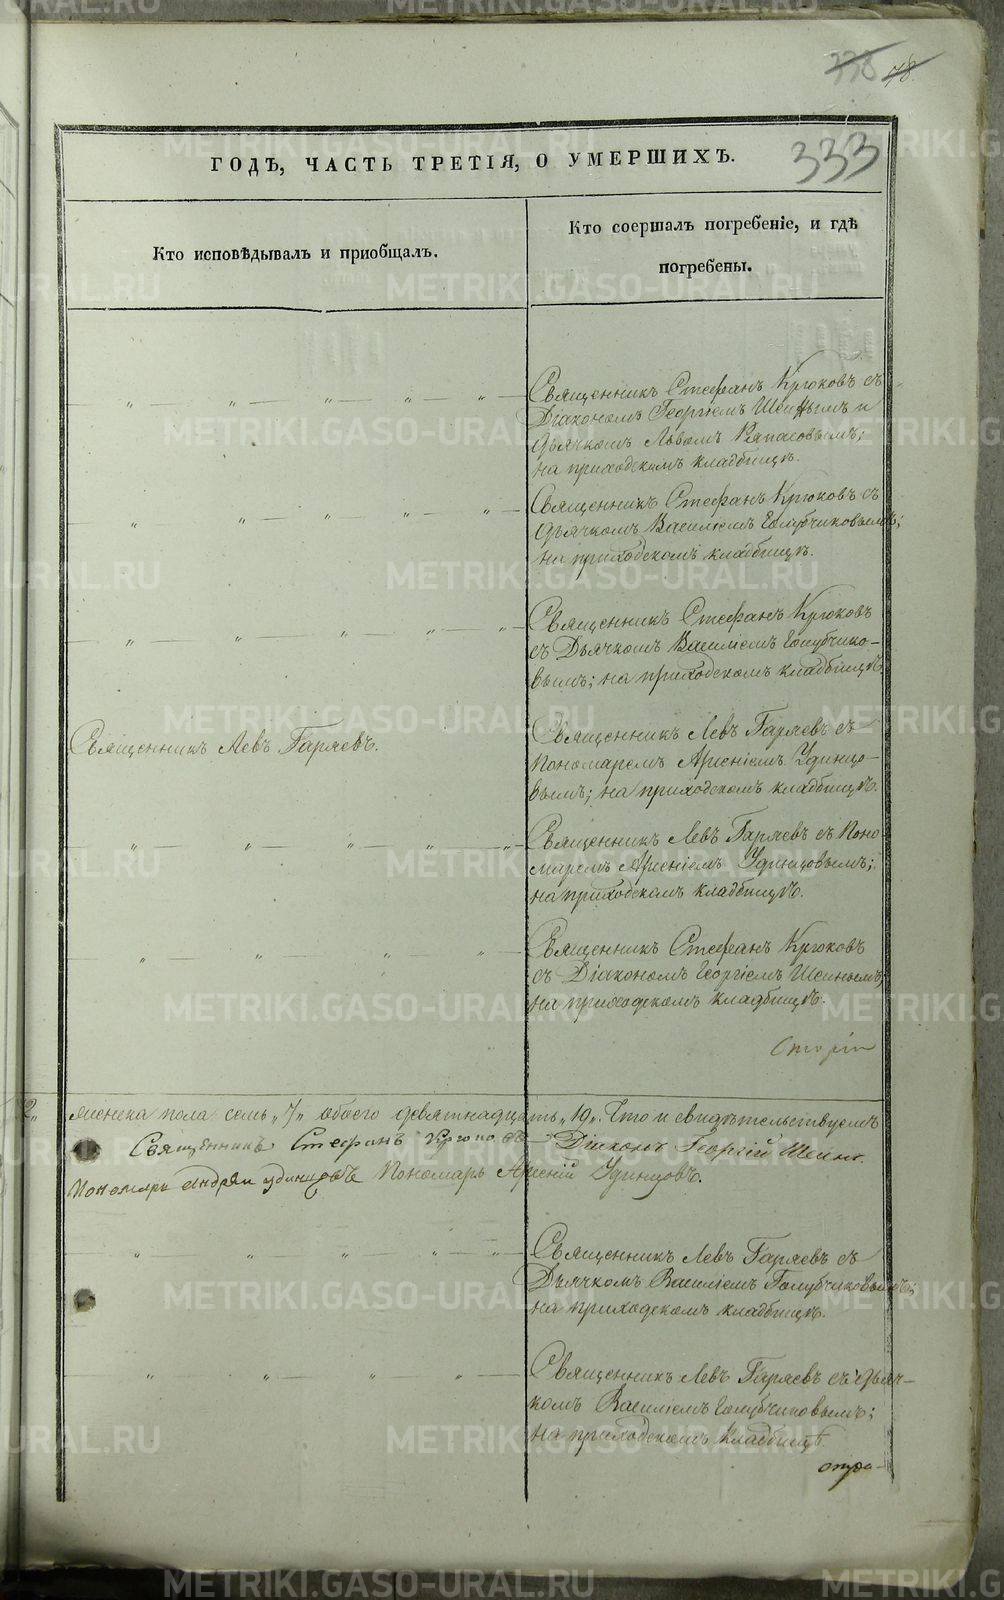 338 78.
333
ГОДЪ, ЧАСТЬ ТРЕТІЯ, О УМЕРШИХЪ.
Кто исповѣдывалъ и пріобщалъ.
Кто соершалъ погребеніе, и гдѣ
погребены.
Священникъ Стефанъ Крюковъ съ
Діакономъ Георгіемъ Шеинымъ и
дьячкомъ Львомъ
на приходскомъ кладбищѣ.
Священникъ Стефанъ Крюковъ съ
дьячкомъ Василіемъ Голубчиковымъ;
на приходскомъ кладбищѣ.
Священникъ Стефанъ Крюковъ
съ Дьячкомъ Василіемъ Голубчико-
вымъ; на приходскомъ кладбищѣ.
Священникъ Левъ Гаряевъ.
Священникъ Левъ Гаряевъ съ
Пономаремъ Арсеніемъ Удинцо-
вымъ; на приходскомъ кладбищѣ.
Священникъ Левъ Гаряевъ съ Поно-
маремъ Арсеніемъ Удинцовымъ;
на приходскомъ кладбищѣ.
Священникъ Стефанъ Крюковъ
съ Діакономъ Георгіемъ Шеинымъ;
на приходскомъ кладбищѣ.
женска пола семь „7„ обоего девятнадцать „19„. Что и свидѣтельствуемъ
Священникъ Стефанъ Крюковъ Діаконъ Георгій Шеинъ.
Пономарь Андрей Удинцовъ Пономарь Арсеній Удинцовъ.
Священникъ Левъ Гаряевъ съ
Дьячкомъ Василіемъ Голубчиковымъ;
на приходскомъ кладбищѣ.
Священникъ Левъ Гаряевъ съ дьяч-
комъ Василіемъ Голубчиковымъ;
на приходскомъ кладбищѣ.
METRIKI.GASO-URAL.RU